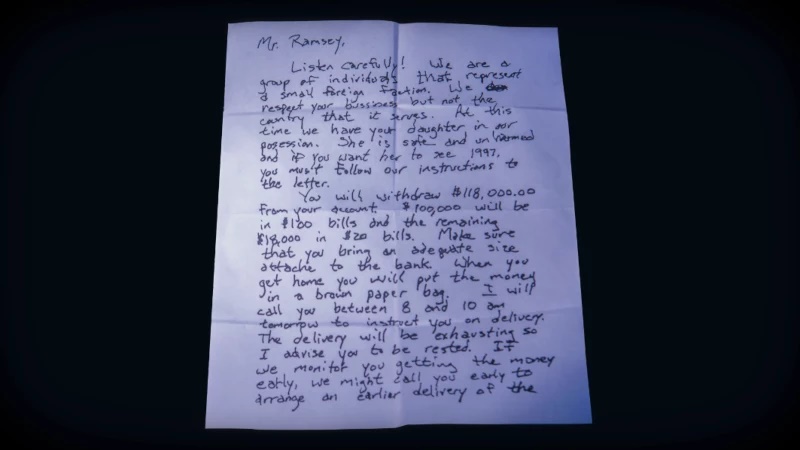 Mr. Ramsey,
Listen Carefully! We are a
group of individuals that represent
a small foreign faction. We
respect your bussiness but not the
country that it serves. At this
time we have your daughter in our
posession. She is safe and unharmed
and if you want her to see 1997,
you must follow our instructions to
the letter.
You will withdraw $118,000.00
from your account. $100,000 will be
in $100 bills and the remaining
$18,000 in $20 bills. Make sure
that you bring an adequate size
attache to the bank. When you
get home you will put the money
in a brown paper bag. I will
call you between 8 and 10 am
tomorrow to instruct you on delivery.
The delivery will be exhausting so
I advise you to be rested. If
we monitor you getting the money
early, we might call you early to
arrange an earlier delivery of the